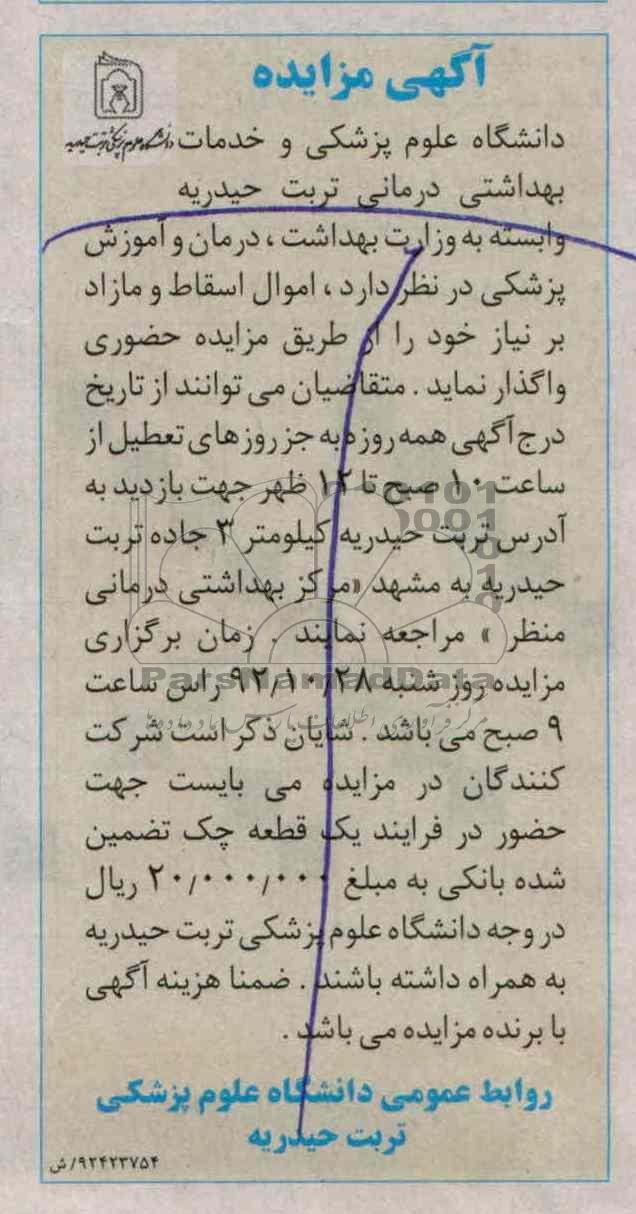 آگهی مزایده
دانشگاه علوم پزشکی تربت حیدریه
دانشگاه علوم پزشکی و خدمات
بهداشتی درمانی تربت حیدریه
وابسته به وزارت بهداشت ، درمان و آموزش
پزشکی در نظر دارد ، اموال اسقاط و مازاد
بر نیاز خود را از طریق مزایده حضوری
واگذار نماید . متقاضیان می توانند از تاریخ
درج آگهی همه روزه به جز روزهای تعطیل از
ساعت ۱۰ صبح تا ۱۲ ظهر جهت بازدید به
آدرس تربت حیدریه کیلومتر ۳ جاده تربت
حیدریه به مشهد «مرکز بهداشتی درمانی
منظر » مراجعه نمایند . زمان برگزاری
ParsNamadData
مزایده روز شنبه ۹۲/۱۰/۲۸ راس ساعت
۹ صبح می باشد . شایان ذکر است شرکت
کنندگان در مزایده می بایست جهت
حضور در فرایند یک قطعه چک تضمین
شده بانکی به مبلغ ۲۰/۰۰۰/۰۰۰ ریال
در وجه دانشگاه علوم پزشکی تربت حیدریه
به همراه داشته باشند . ضمنا هزینه آگهی
با برنده مزایده می باشد .
روابط عمومی دانشگاه علوم پزشکی
تربت حیدریه
۹۲۴۲۳۷۵۴/ش